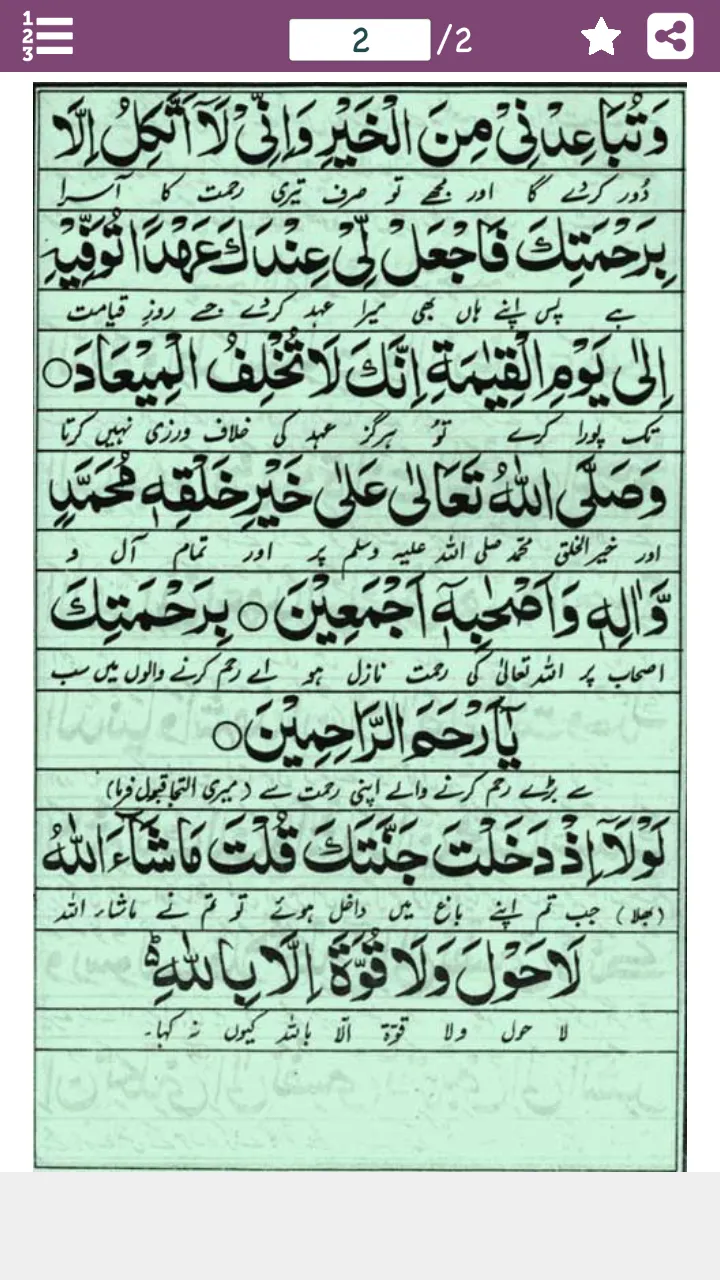 1
2
3
2 /2
وَتُبَاعِدْنِیْ مِنَ الْخَیْرِ وَاِنِّیْ لَآ اَتَّکِلُ اِلَّا
دُور کردے گا اور مجھے تو صرف تیری رحمت کا آسرا
بِرَحْمَتِكَ فَاجْعَلْ لِّیْ عِنْدَكَ عَهْدًا تُوَفِّیْهِ
ہے پس اپنے ہاں بھی میرا عہد کردے جسے روزِ قیامت
اِلٰی یَوْمِ الْقِیٰمَةِ اِنَّكَ لَا تُخْلِفُ الْمِیْعَادَ○
تک پورا کرے تُو ہرگز عہد کی خلاف ورزی نہیں کرتا
وَصَلَّی اللّٰهُ تَعَالٰی عَلٰی خَیْرِ خَلْقِهٖ مُحَمَّدٍ
اور خیر الخلق محمّد صلی اللہ علیہ وسلم پر اور تمام آل و
وَّاٰلِهٖ وَاَصْحٰبِهٖٓ اَجْمَعِیْنَ○ بِرَحْمَتِكَ
اصحاب پر اللہ تعالیٰ کی رحمت نازل ہو اے رحم کرنے والوں میں سب
یَآ اَرْحَمَ الرَّاحِمِیْنَ○
سے بڑے رحم کرنے والے اپنی رحمت سے (میری التجا قبول فرما)
لَوْلَآ اِذْ دَخَلْتَ جَنَّتَكَ قُلْتَ مَا شَآءَ اللّٰهُ
(بھلا) جب تم اپنے باغ میں داخل ہوئے تو تم نے ماشاء اللہ
لَا حَوْلَ وَلَا قُوَّةَ اِلَّا بِاللّٰهِ ۚ
لا حول ولا قوّة الّا باللہ کیوں نہ کہا۔